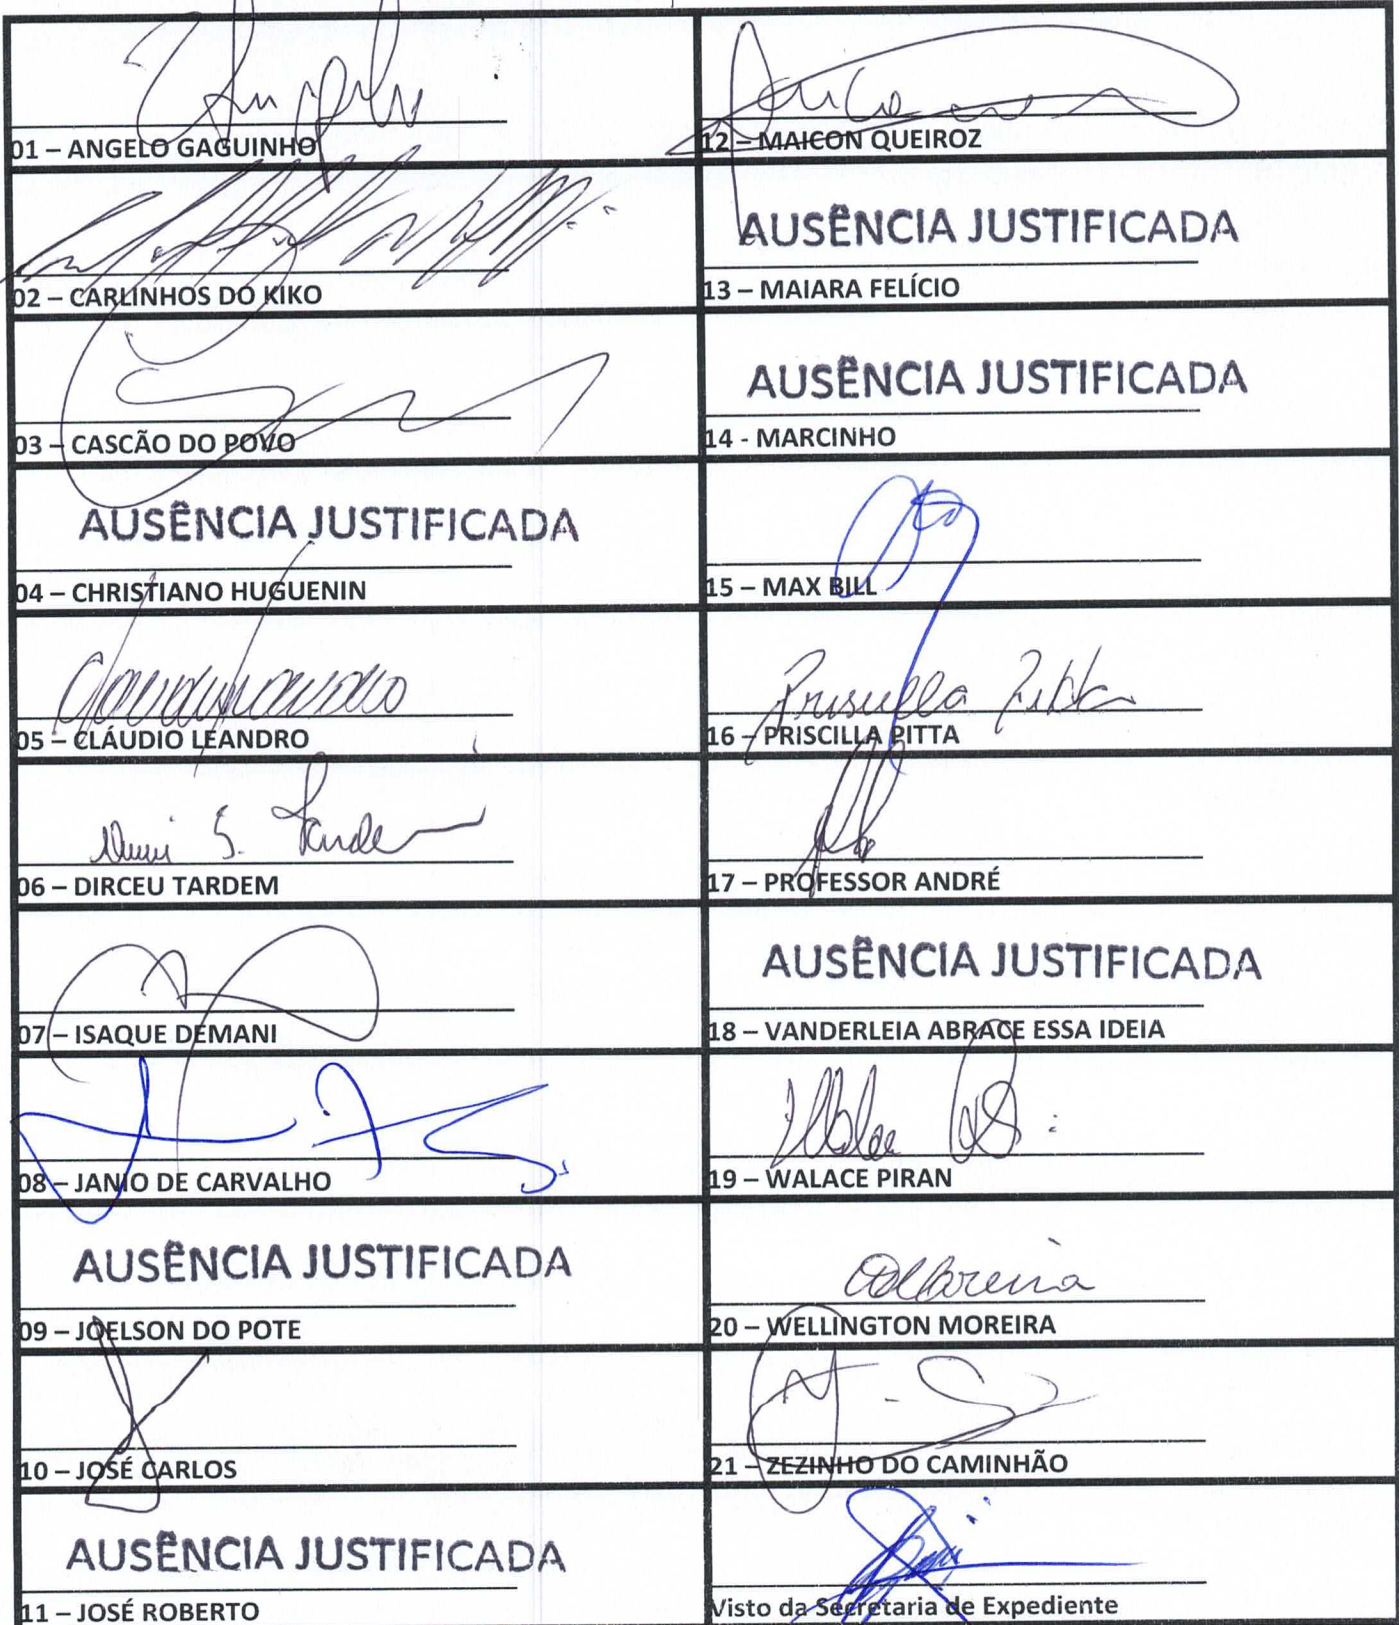 Angelo
01 – ANGELO GAGUINHO
02 – CARLINHOS DO KIKO
03 – CASCÃO DO POVO
AUSÊNCIA JUSTIFICADA
04 – CHRISTIANO HUGUENIN
05 – CLÁUDIO LEANDRO
S. Tardem
06 – DIRCEU TARDEM
07 – ISAQUE DEMANI
08 – JANIO DE CARVALHO
AUSÊNCIA JUSTIFICADA
09 – JOELSON DO POTE
10 – JOSÉ CARLOS
AUSÊNCIA JUSTIFICADA
11 – JOSÉ ROBERTO
12 – MAICON QUEIROZ
AUSÊNCIA JUSTIFICADA
13 – MAIARA FELÍCIO
AUSÊNCIA JUSTIFICADA
14 - MARCINHO
15 – MAX BILL
Priscilla Pitta
16 – PRISCILLA PITTA
17 – PROFESSOR ANDRÉ
AUSÊNCIA JUSTIFICADA
18 – VANDERLEIA ABRACE ESSA IDEIA
19 – WALACE PIRAN
20 – WELLINGTON MOREIRA
21 – ZEZINHO DO CAMINHÃO
Visto da Secretaria de Expediente